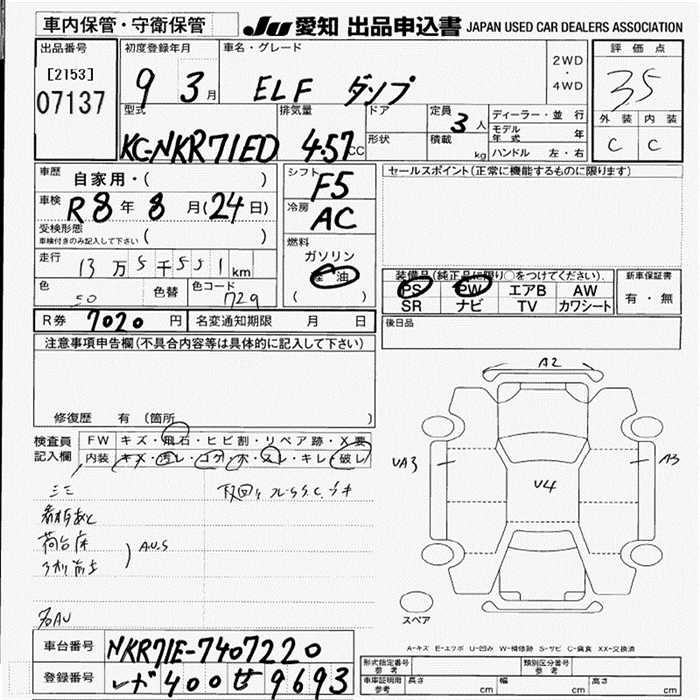 車内保管・守衛保管 JU 愛知 出品申込書 JAPAN USED CAR DEALERS ASSOCIATION
出品番号 初度登録年月 車名・グレード 2WD ・ 4WD 評価点
[2153] 9 3月 ELF ダンプ 3.5
07137 外装 内装
型式 排気量 ドア 定員 3人 ディーラー・並行 C C
KC-NKR71ED 4.57 CC 形状 積載 kg モデル年式 年
ハンドル 左・右
車歴 自家用・( ) シフト F5 セールスポイント(正常に機能するものに限ります)
車検 R8年8月(24日) 冷房 AC
受検形態 車検付きのみ記入して下さい ( ) 燃料
走行 13万5千551km ガソリン
軽油
( )
装備品(純正品に限り○をつけてください). 新車保証書
PS PW エアB AW 有・無
SR ナビ TV カワシート
色 50 色替 色コード 729
R券 7020円 名変通知期限 月 日 後日品
注意事項申告欄(不具合内容等は具体的に記入して下さい)
修復歴 有 (箇所 )
検査員記入欄 FW キズ・飛石・ヒビ割・リペア跡・X要
内装 キズ・汚レ・コゲ・穴・スレ・キレ・破レ
A2
UA3 U4 A3
荷台床
A.U.S
スペア
A-キズ E-エクボ U-凹み W-補修跡 S-サビ C-腐食 XX-交換済
車台番号 NKR71E-7407220
形式指定番号 参考 類別区分番号 参考
登録番号 400 せ 9693
車庫証明用 参考 長さ cm 幅 cm 高さ cm